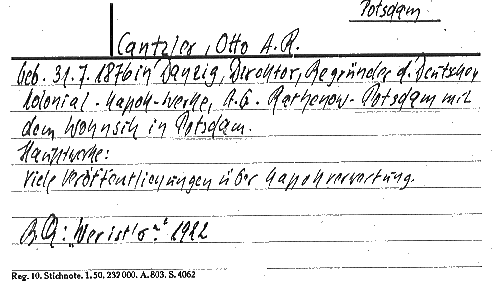 Potsdam
Cantzler, Otto A.R.
Geb. 31.7.1876 in Danzig, Direktor, Begründer d. Deutschen
Kolonial-Kapok-Werke, A.G. Rathenow-Potsdam mit
dem Wohnsitz in Potsdam.
Hauptwerke:
Viele Veröffentlichungen über Kapokverwertung.
"Wer ist's?" 1922
Reg. 10. Stichnote. 1.50. 232000. A. 803. S. 4062